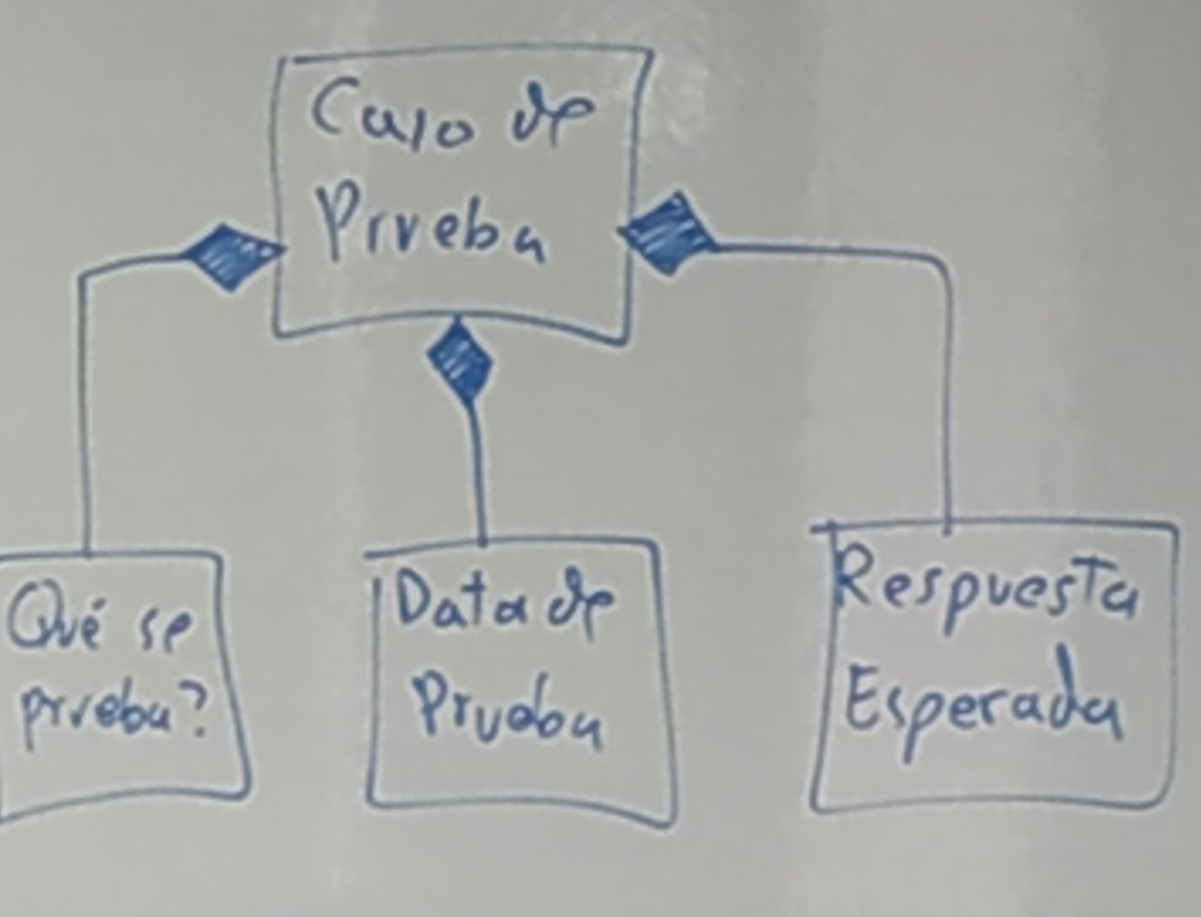 Caso de
Prueba
Qué se
prueba?
Data de
Prueba
Respuesta
Esperada